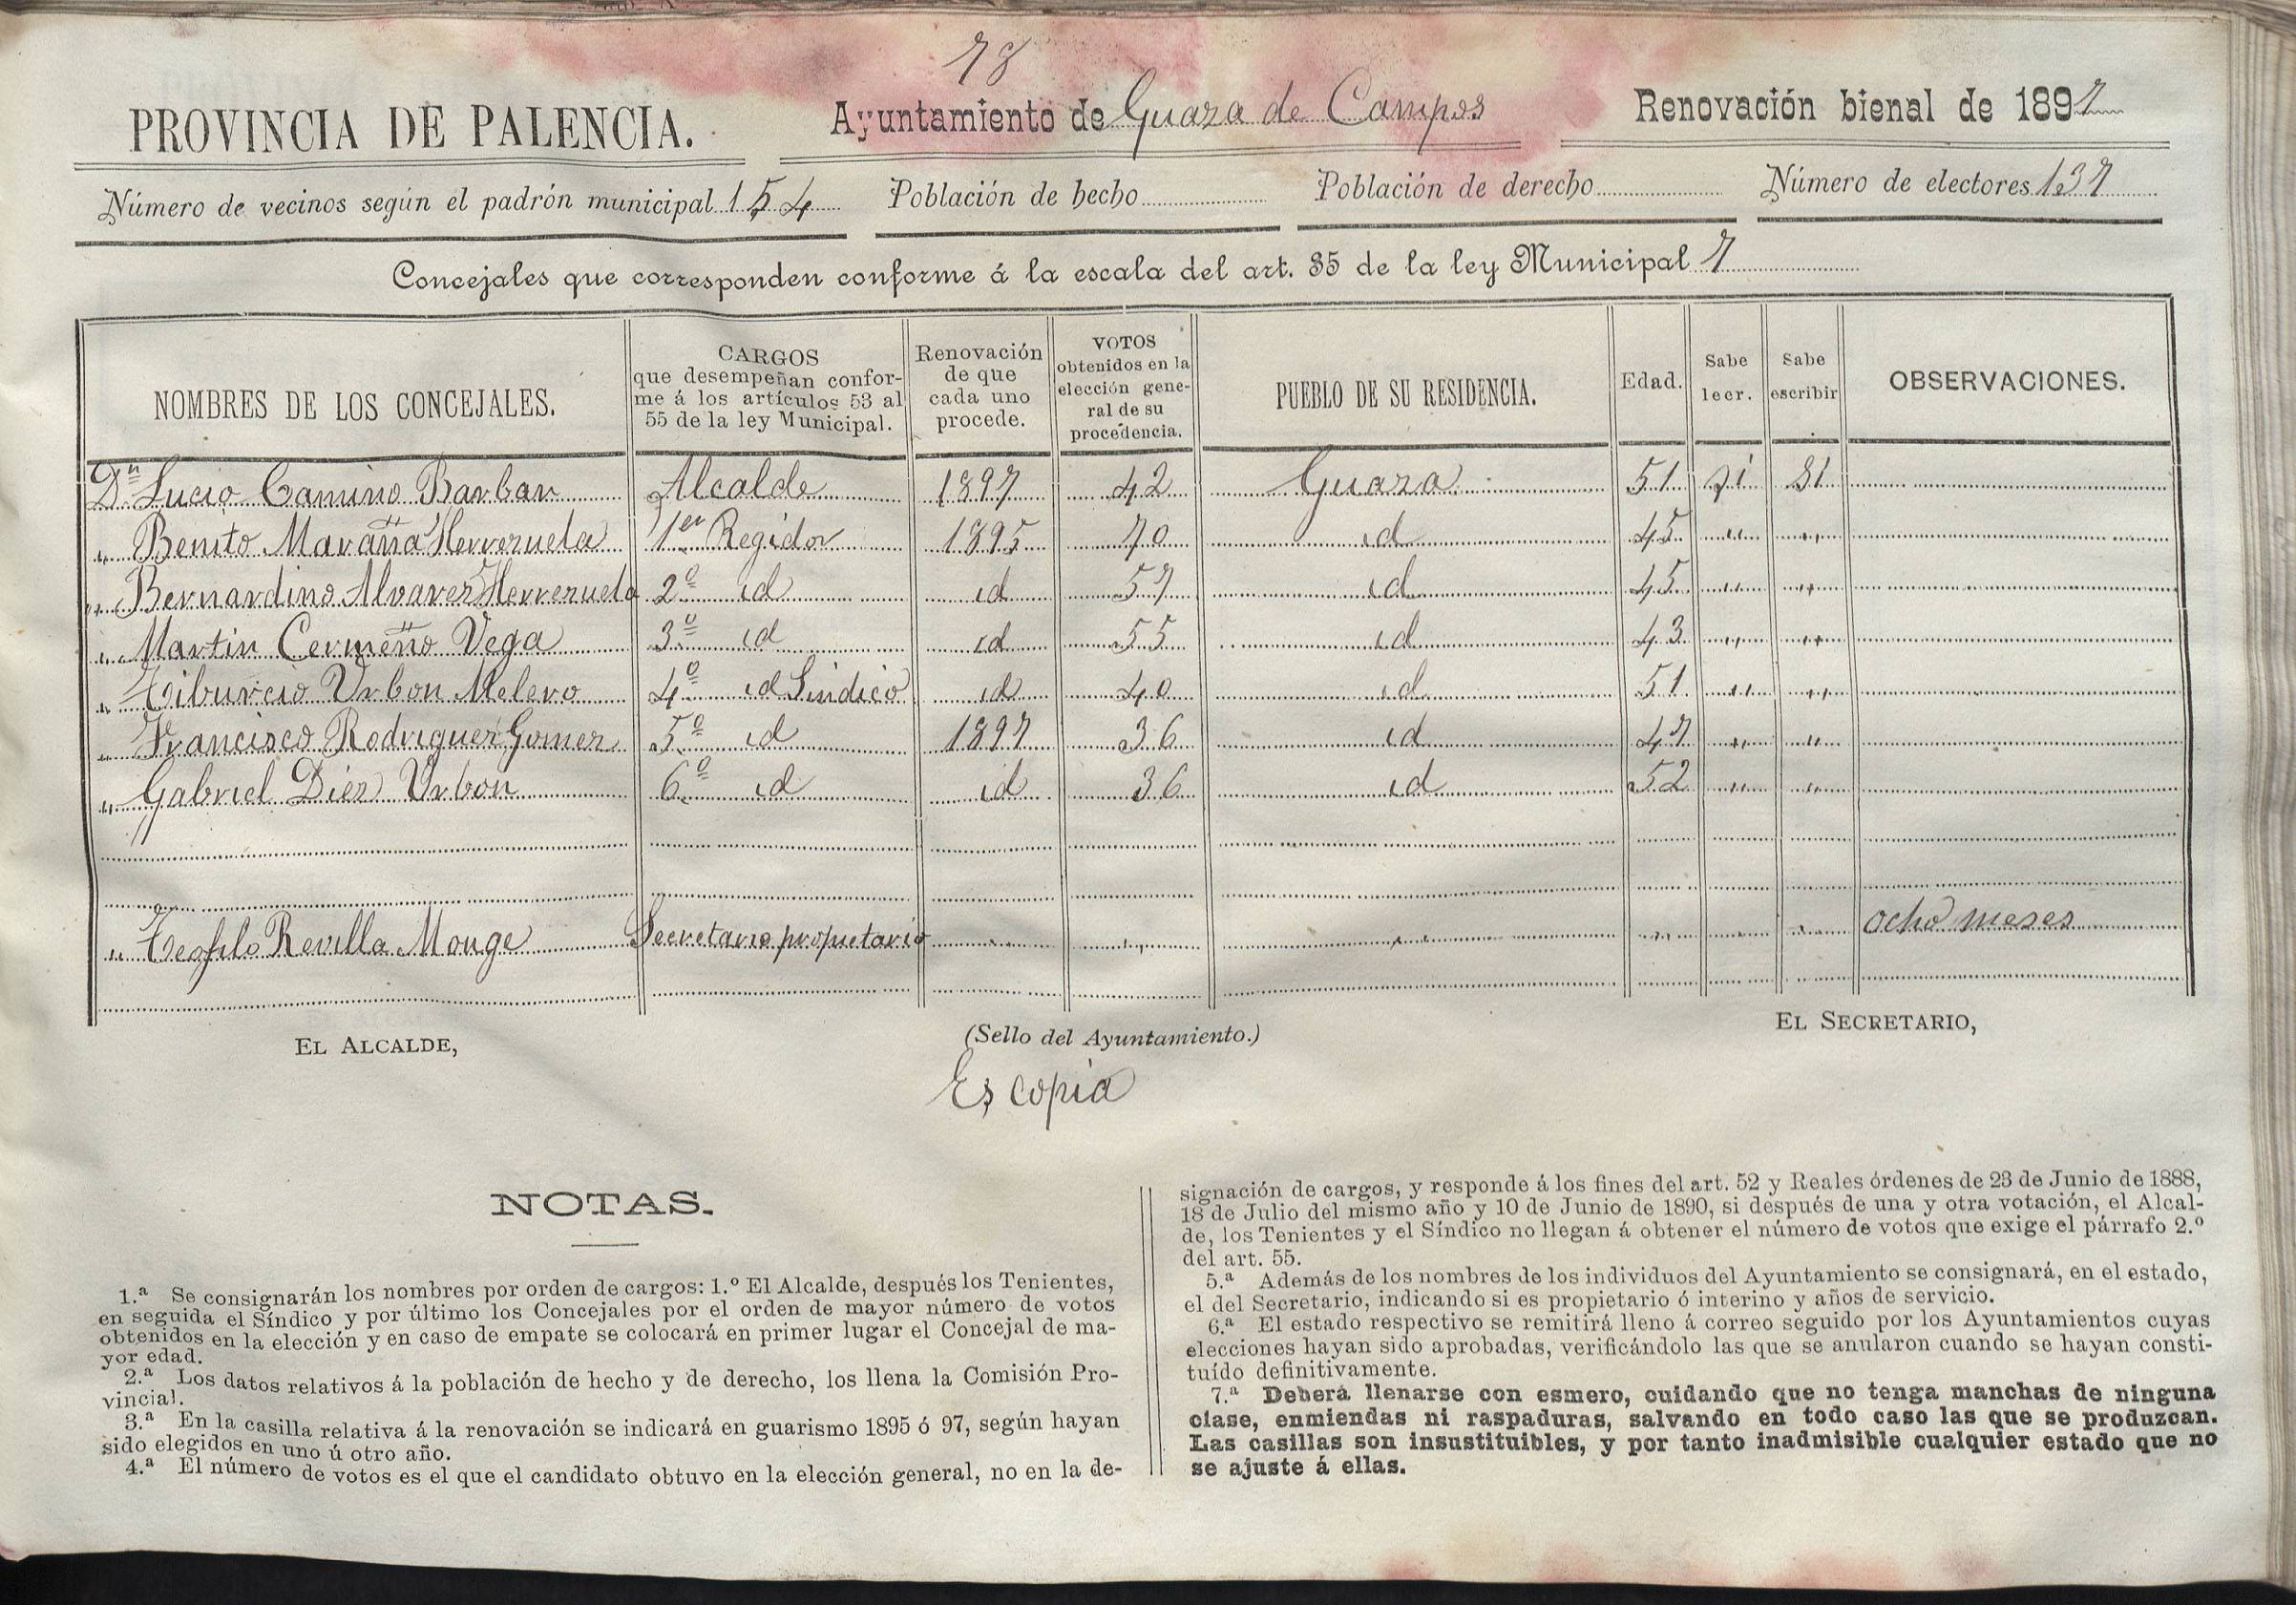 78
PROVINCIA DE PALENCIA. Ayuntamiento de Guaza de Campos Renovación bienal de 1897
Número de vecinos según el padrón municipal 154 Población de hecho Población de derecho Número de electores 137
Concejales que corresponden conforme á la escala del art. 35 de la ley Municipal 7
NOMBRES DE LOS CONCEJALES. CARGOS que desempeñan conforme á los artículos 53 al 55 de la ley Municipal. Renovación de que cada uno procede. VOTOS obtenidos en la elección general de su procedencia. PUEBLO DE SU RESIDENCIA. Edad. Sabe leer. Sabe escribir OBSERVACIONES.
Dn Lucio Camino Barban Alcalde 1897 42 Guaza 51 si si
" Benito Maraña Herrezuela 1er Regidor 1895 70 id 45 " "
" Bernardino Alvarez Herrezuela 2º id id 57 id 45 " "
" Martin Cermeño Vega 3º id id 55 id 43 " "
" Tiburcio Urbon Melero 4º id Sindico id 40 id 51 " "
" Francisco Rodriguez Gomez 5º id 1897 36 id 47 " "
" Gabriel Diez Urbon 6º id id 36 id 52 " "
" Teofilo Revilla Monge Secretario propietario " " " " " " ocho meses
EL ALCALDE, (Sello del Ayuntamiento.) EL SECRETARIO,
Es copia
NOTAS.
1.ª Se consignarán los nombres por orden de cargos: 1.º El Alcalde, después los Tenientes,
en seguida el Síndico y por último los Concejales por el orden de mayor número de votos
obtenidos en la elección y en caso de empate se colocará en primer lugar el Concejal de ma-
yor edad.
2.ª Los datos relativos á la población de hecho y de derecho, los llena la Comisión Pro-
vincial.
3.ª En la casilla relativa á la renovación se indicará en guarismo 1895 ó 97, según hayan
sido elegidos en uno ú otro año.
4.ª El número de votos es el que el candidato obtuvo en la elección general, no en la de-
signación de cargos, y responde á los fines del art. 52 y Reales órdenes de 23 de Junio de 1888,
18 de Julio del mismo año y 10 de Junio de 1890, si después de una y otra votación, el Alcal-
de, los Tenientes y el Síndico no llegan á obtener el número de votos que exige el párrafo 2.º
del art. 55.
5.ª Además de los nombres de los individuos del Ayuntamiento se consignará, en el estado,
el del Secretario, indicando si es propietario ó interino y años de servicio.
6.ª El estado respectivo se remitirá lleno á correo seguido por los Ayuntamientos cuyas
elecciones hayan sido aprobadas, verificándolo las que se anularon cuando se hayan consti-
tuído definitivamente.
7.ª Deberá llenarse con esmero, cuidando que no tenga manchas de ninguna
clase, enmiendas ni raspaduras, salvando en todo caso las que se produzcan.
Las casillas son insustituibles, y por tanto inadmisible cualquier estado que no
se ajuste á ellas.